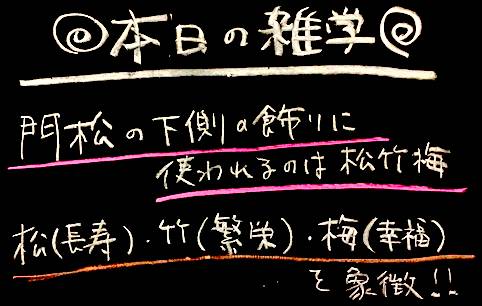 本日の雑学
門松の下側の飾りに
使われるのは松竹梅
松(長寿)・竹(繁栄)・梅(幸福)
を象徴!!